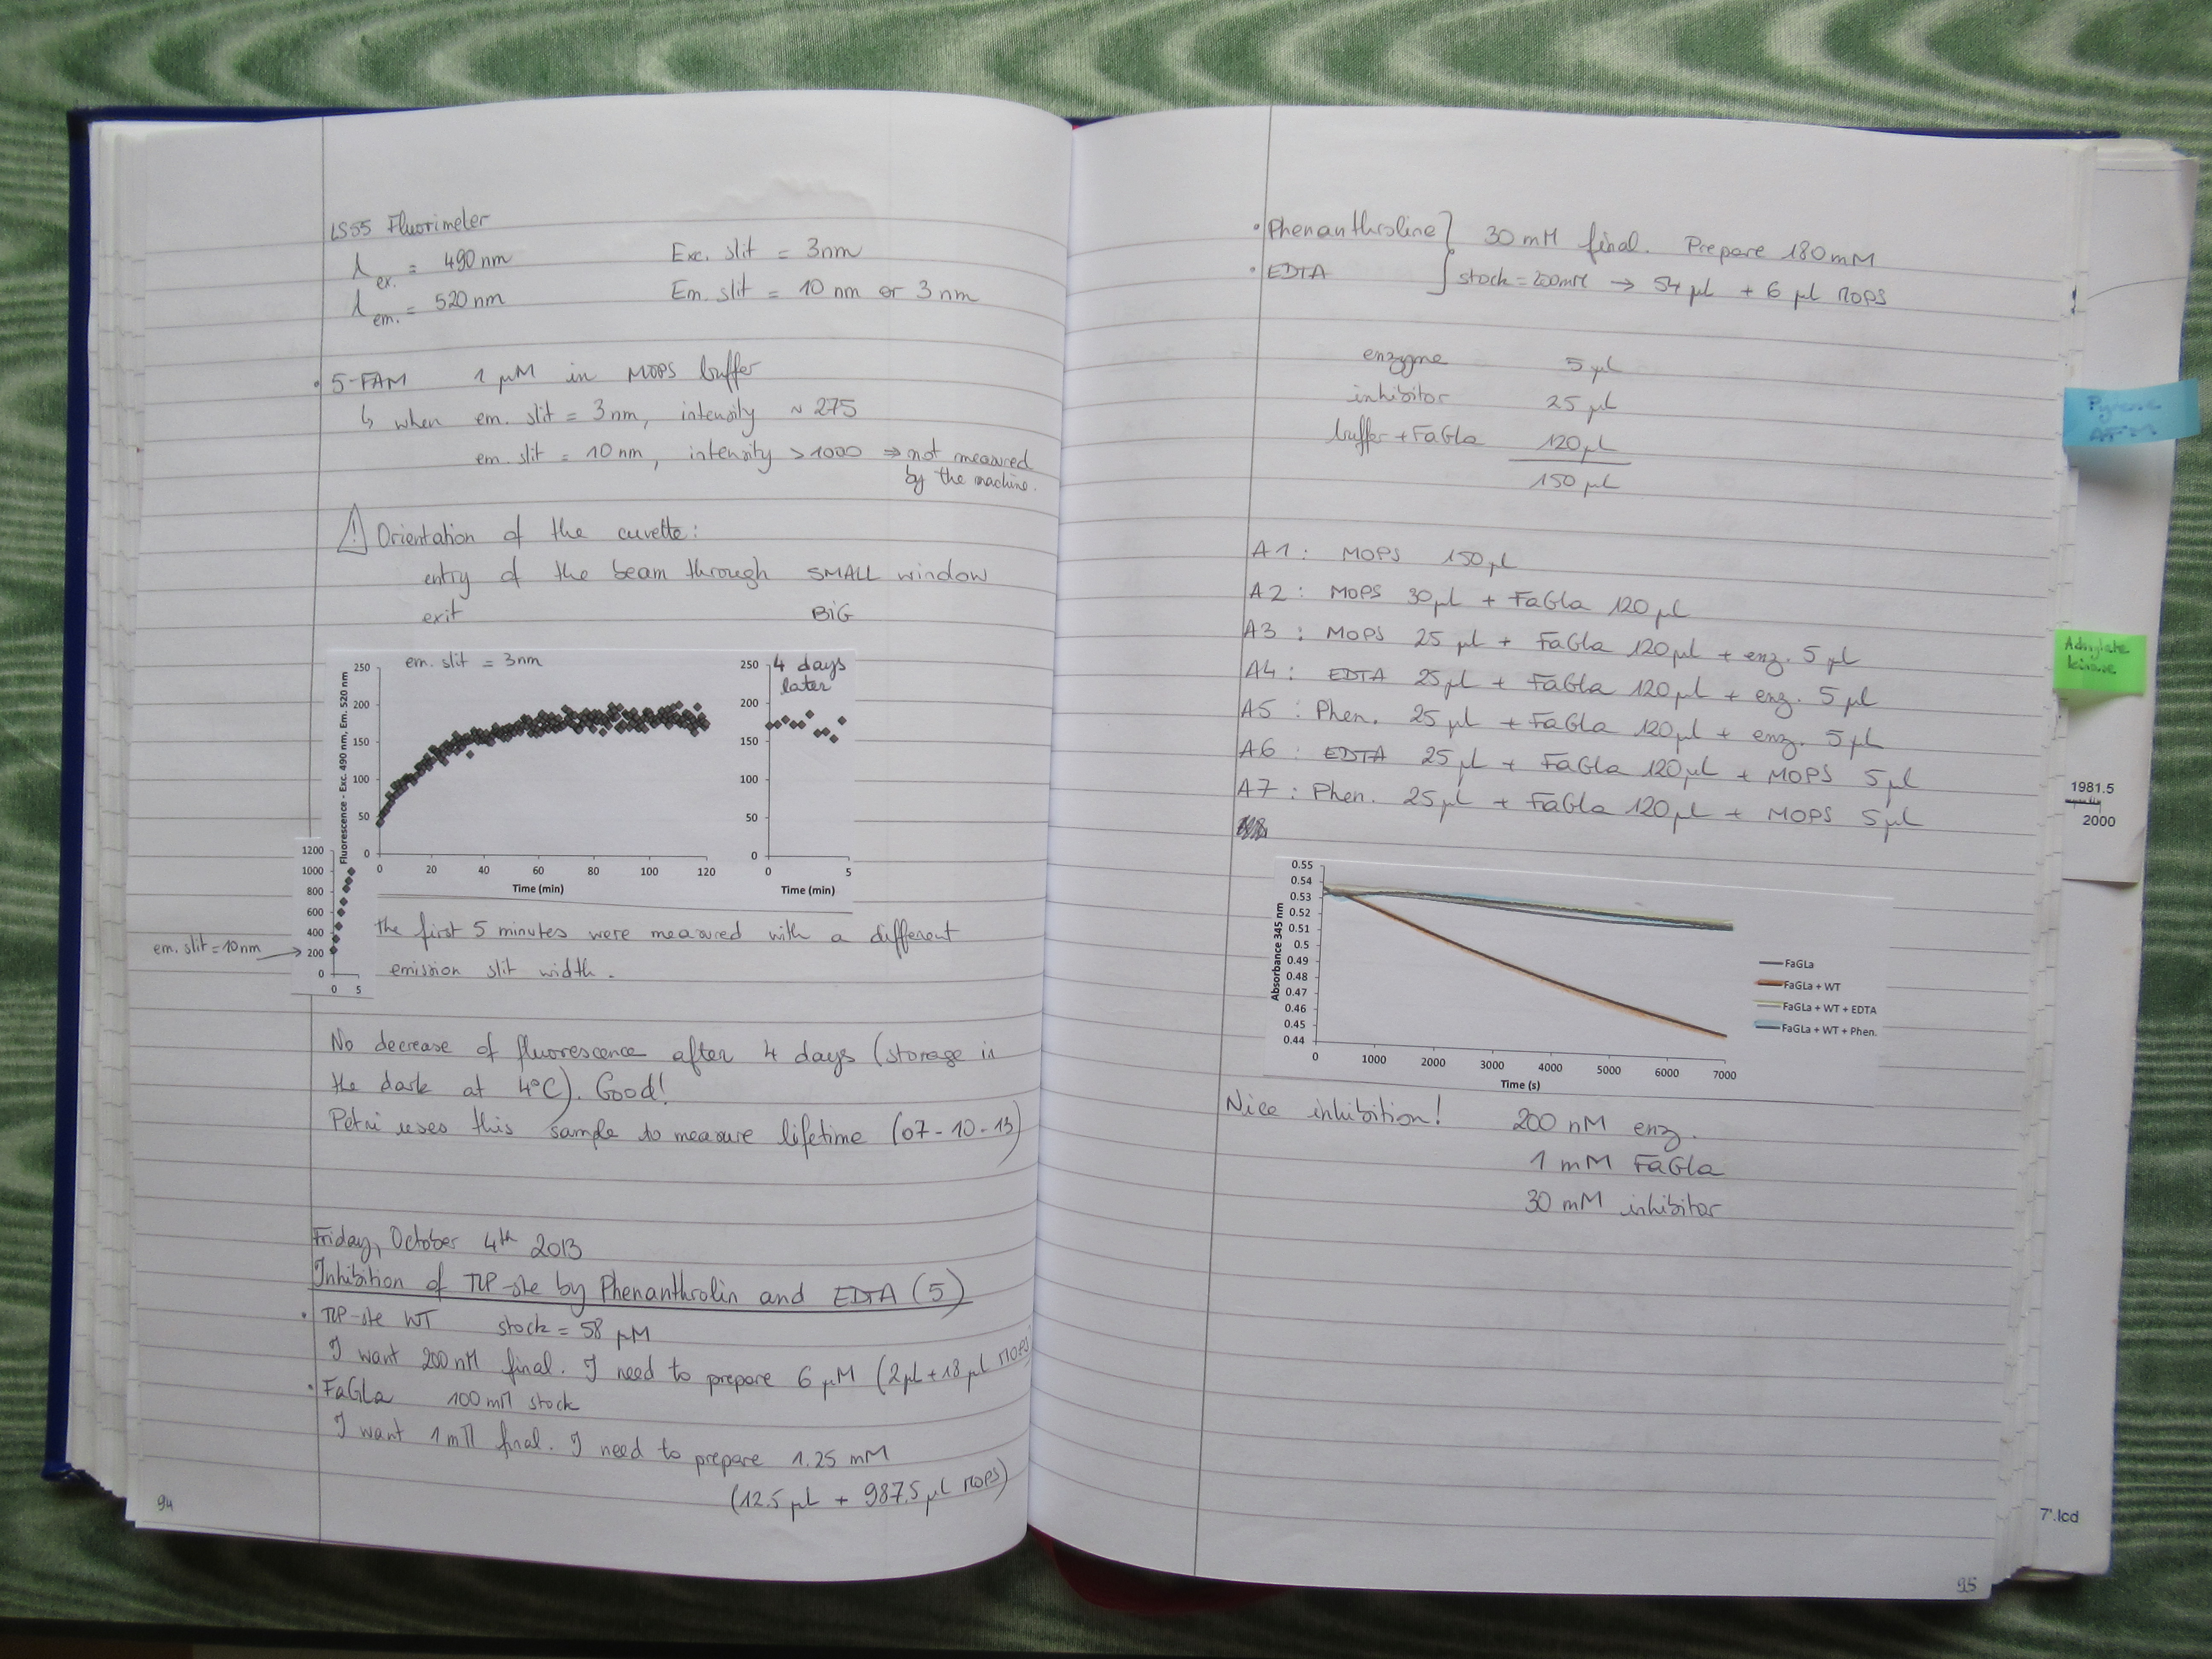 LS55 Fluorimeter
λex. = 490 nm Exc. slit = 3nm
λem. = 520 nm Em. slit = 10 nm or 3 nm
• 5-FAM 1 µM in MOPS buffer
↳ when em. slit = 3nm, intensity ~ 275
em. slit = 10 nm, intensity > 1000 ⇒ not measured
by the machine.
⚠ Orientation of the cuvette:
entry of the beam through SMALL window
exit BiG
em. slit = 3nm
Fluorescence - Exc. 490 nm, Em. 520 nm
250
200
150
100
50
0
0 20 40 60 80 100 120
Time (min)
4 days
later
250
200
150
100
50
0
0 5
Time (min)
1200
1000
800
600
400
200
0
0 5
em. slit = 10nm →
the first 5 minutes were measured with a different
emission slit width.
No decrease of fluorescence after 4 days (storage in
the dark at 4°C). Good!
Petri uses this sample to measure lifetime (07-10-13)
Friday, October 4th 2013
Inhibition of TLP-ste by Phenanthrolin and EDTA (5)
• TLP-ste WT stock = 58 µM
I want 200 nM final. I need to prepare 6 µM (2µL + 18µL MOPS)
• FaGLa 100 mM stock
I want 1 mM final. I need to prepare 1.25 mM
(12.5 µL + 987.5 µL MOPS)
94
• Phenanthroline } 30 mM final. Prepare 180 mM
• EDTA } stock = 200mM → 54 µL + 6 µL MOPS
enzyme 5 µL
inhibitor 25 µL
buffer + FaGLa 120 µL
150 µL
A1: MOPS 150 µL
A2: MOPS 30µL + FaGLa 120 µL
A3: MOPS 25 µL + FaGLa 120µL + enz. 5 µL
A4: EDTA 25µL + FaGLa 120µL + enz. 5 µL
A5: Phen. 25 µL + FaGLa 120µL + enz. 5 µL
A6: EDTA 25µL + FaGLa 120µL + MOPS 5µL
A7: Phen. 25µL + FaGLa 120µL + MOPS 5µL
Absorbance 345 nm
0.55
0.54
0.53
0.52
0.51
0.5
0.49
0.48
0.47
0.46
0.45
0.44
0 1000 2000 3000 4000 5000 6000 7000
Time (s)
FaGLa
FaGLa + WT
FaGLa + WT + EDTA
FaGLa + WT + Phen.
Nice inhibition! 200 nM enz.
1 mM FaGLa
30 mM inhibitor
95
Pyrene
AFM
Adenylate
kinase
1981.5
2000
7'.lcd